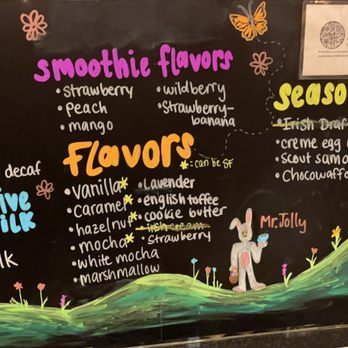 smoothie flavors
• strawberry
• peach
• mango
• wildberry
• strawberry-
banana
Flavors
*= can be SF
• vanilla*
• caramel*
• hazelnut*
• mocha*
• white mocha
• marshmallow
• Lavender
• english toffee
• cookie butter
• irish cream
• strawberry
Mr. Jolly
seaso
• Irish Draf
• creme egg
• scout samo
• Chocowaffl
decaf
ive
ilk
lk